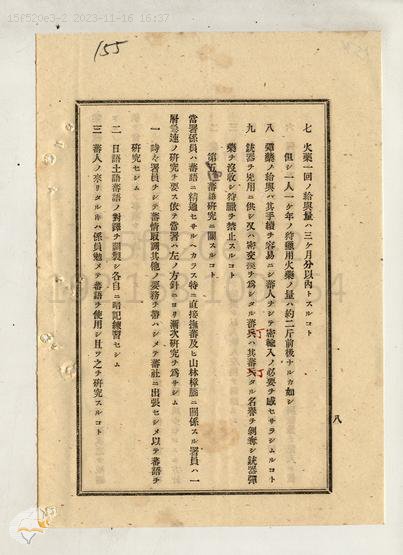 15f520e3-2.2023-11-16 16:37
155
七 火藥一囘ノ給與量ハ三ケ月分以內トスルコト
但シ一人一ケ年ノ狩獵用火藥ノ量ハ約二斤前後ナルカ如シ
八 彈藥ノ給與ハ其手續ヲ容易ニシ蕃人ヲシテ密輸入ノ必要ヲ感セサラシムルコト
九 銃器ヲ兇用ニ供シ又ハ密交換ヲ爲シタル蕃丁ハ其蕃丁タル名譽ヲ剝奪シ銃器彈
藥ヲ沒收シ狩獵ヲ禁止スルコト
第五 蕃語硏究ニ關スルコト
當署係員ハ蕃語ニ精通セサルヘカラス特ニ直接撫蕃及ヒ山林樟腦ニ關係スル署員ハ一
層急速ノ硏究ヲ要ス依テ當署ハ左ノ方針ニヨリ漸次硏究ヲ爲サシム
一 時々署員ヲシテ蕃情取調其他ノ要務ヲ帶ハシメテ蕃社ニ出張セシメ以テ蕃語ヲ
硏究セシム
二 日語土語蕃語ノ對譯ヲ調製シ各自ニ暗記練習セシム
三 蕃人ノ來リタルキハ係員勉メテ蕃語ヲ使用シ且ツ之ヲ硏究スルコト
八